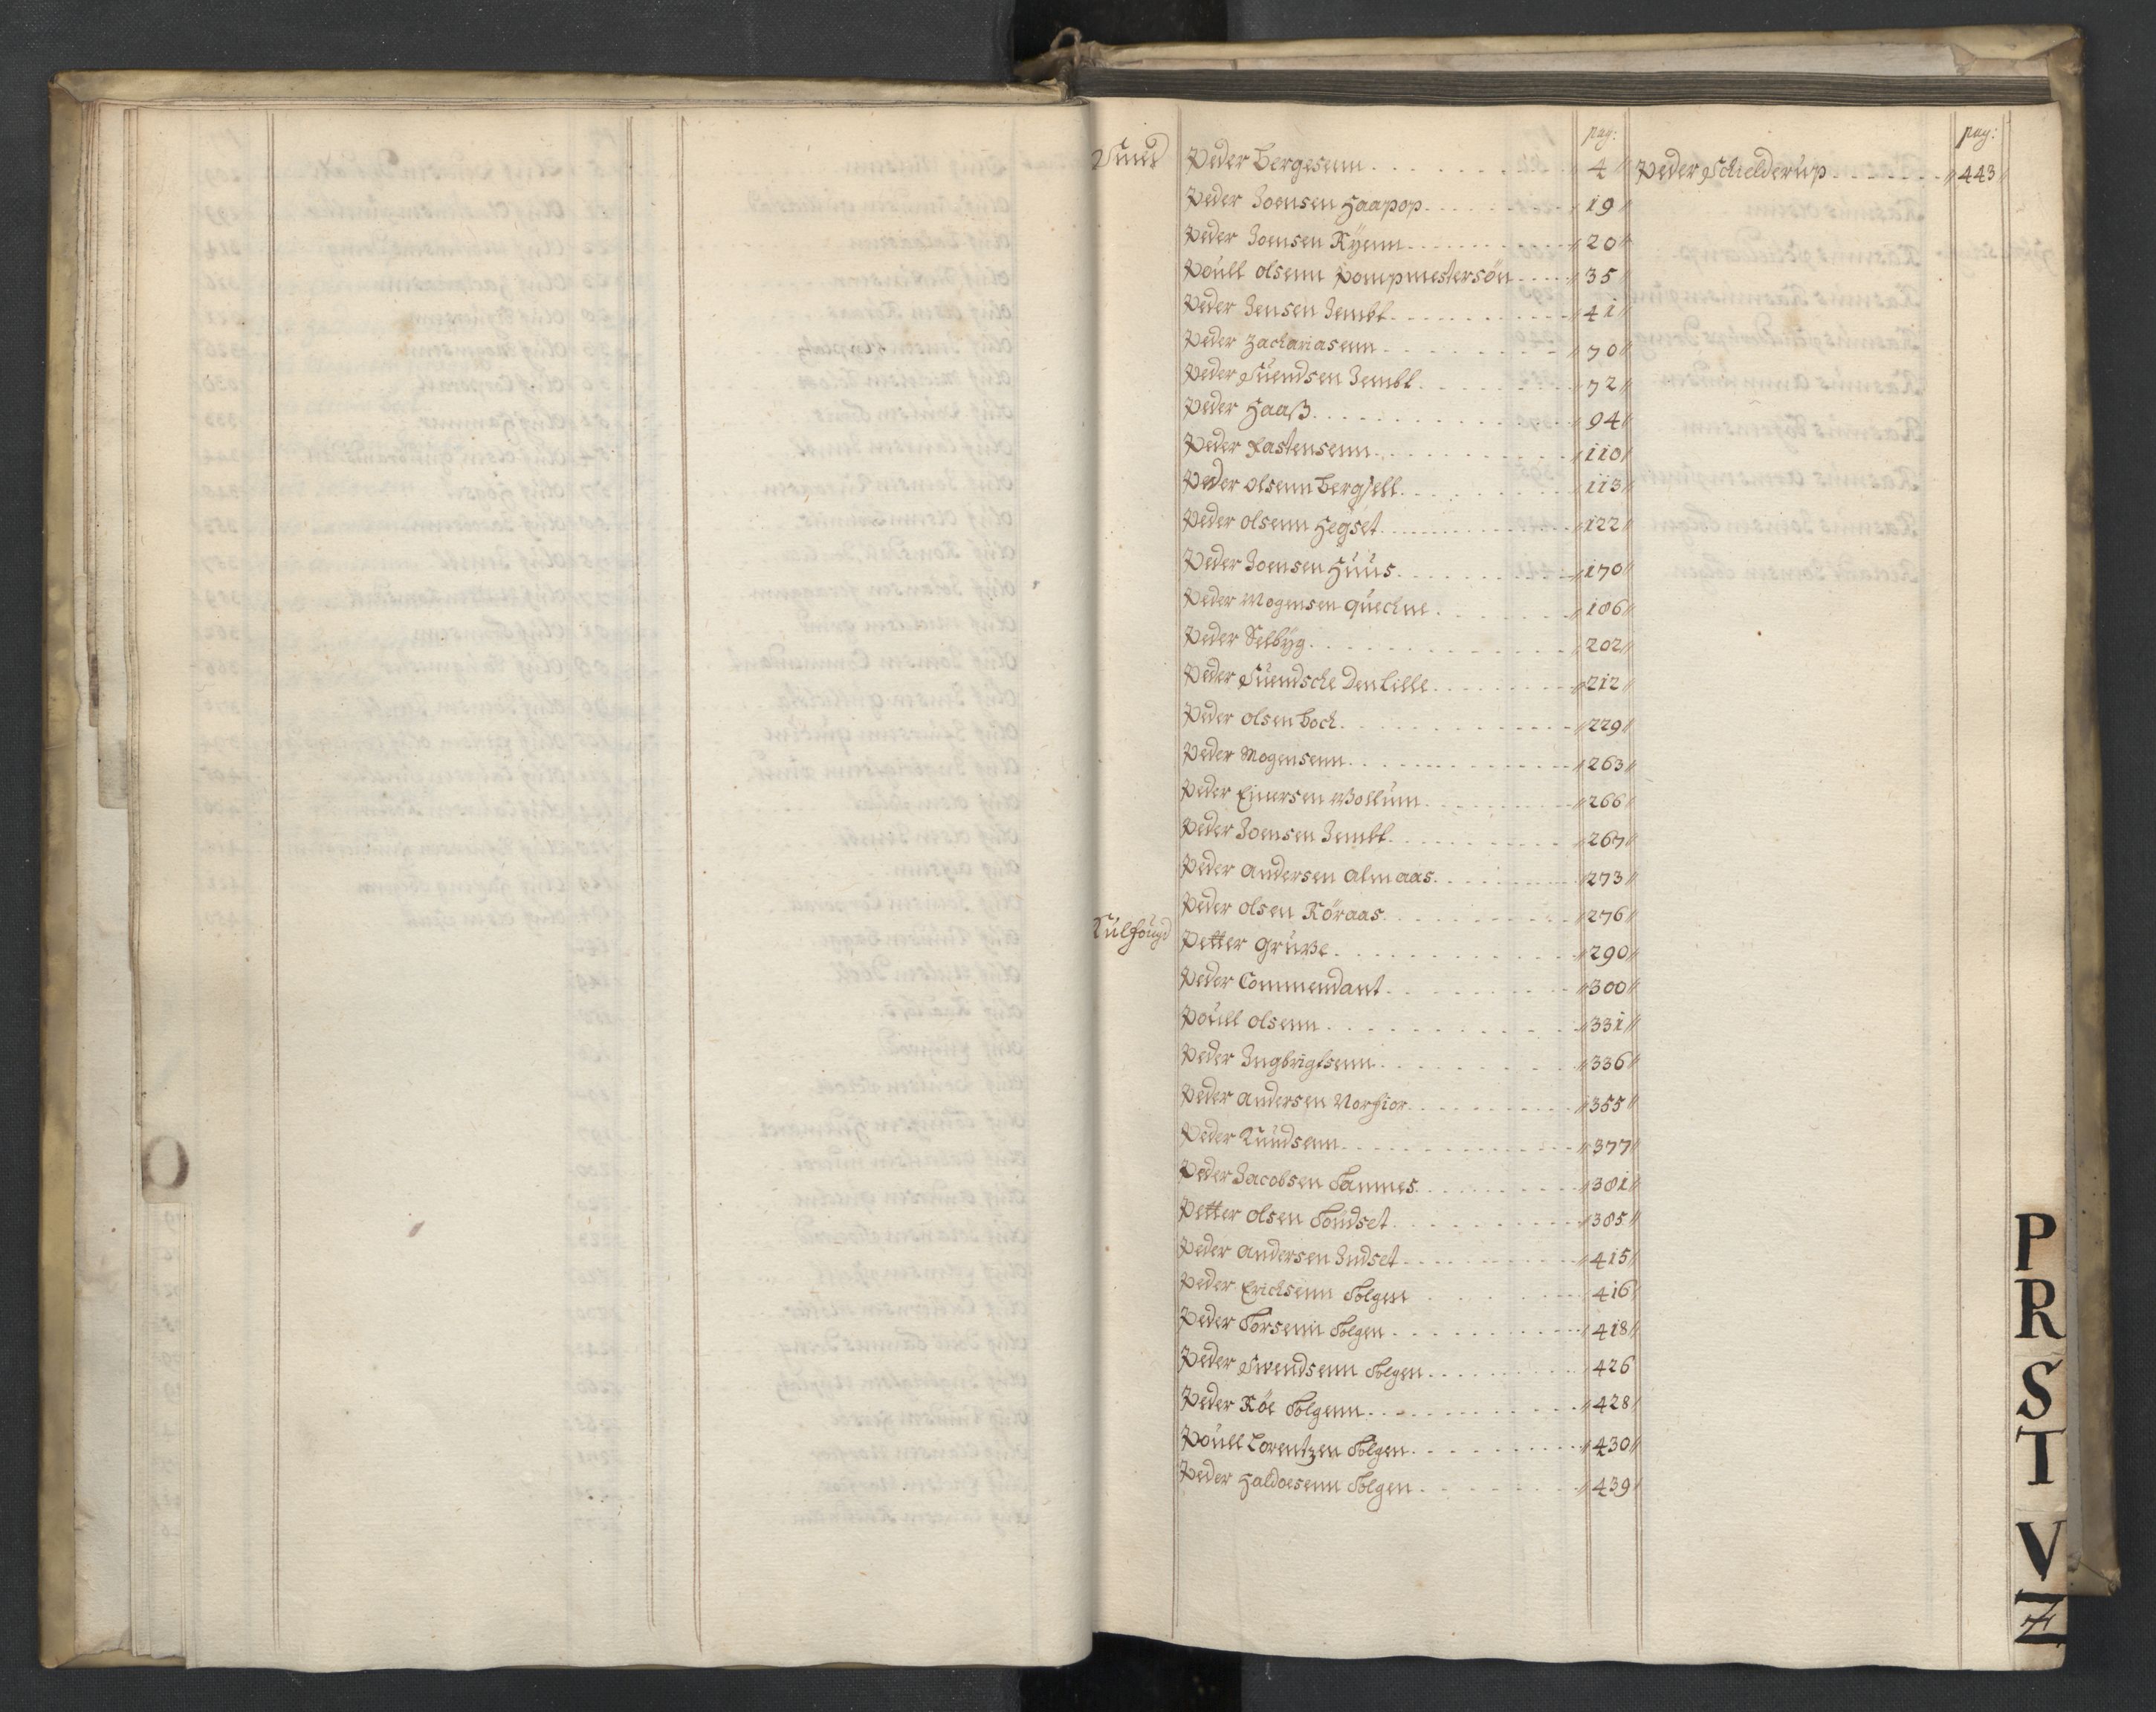 pag:
Smed Peder Bergesenn 4
Peder Joensen Haapop 19
Peder Joensen Ryenn 20
Poull olsenn Pompmestersön 35
Peder Jensen Jembt 41
Peder Zachariasenn 70
Peder Suendsen Jembt 72
Peder Haaß 94
Peder Kastensenn 110
Peder olsenn Bergsell 113
Peder olsenn Hegset 122
Peder Joensen Huus 170
Peder Mogensen Quechne 186
Peder Selbyg 202
Peder Suendsche Den Lille 212
Peder olsen Boch 229
Peder Mogensenn 263
Peder Einersen Wollum 266
Peder Joensen Jembt 267
Peder Andersen Almaas 273
Peder olsen Röraas 276
Kulfougd Petter Gruße 290
Peder Commendant 300
Poull olsenn 331
Peder Ingbrigtsenn 336
Peder Andersen Norfior 355
Peder Knudsenn 377
Peder Jacobsen Tamnes 381
Petter olsen Tondset 385
Peder Andersen Indset 415
Peder Erichsenn Tolgen 416
Peder Torsenn Tolgen 418
Peder Swendsenn Tolgen 426
Peder Röe Tolgenn 428
Poull Lorentzen Tolgen 430
Peder Haldoesenn Tolgen 439
pag:
Peder Schielderup 443
O
P
R
S
T
V
Z